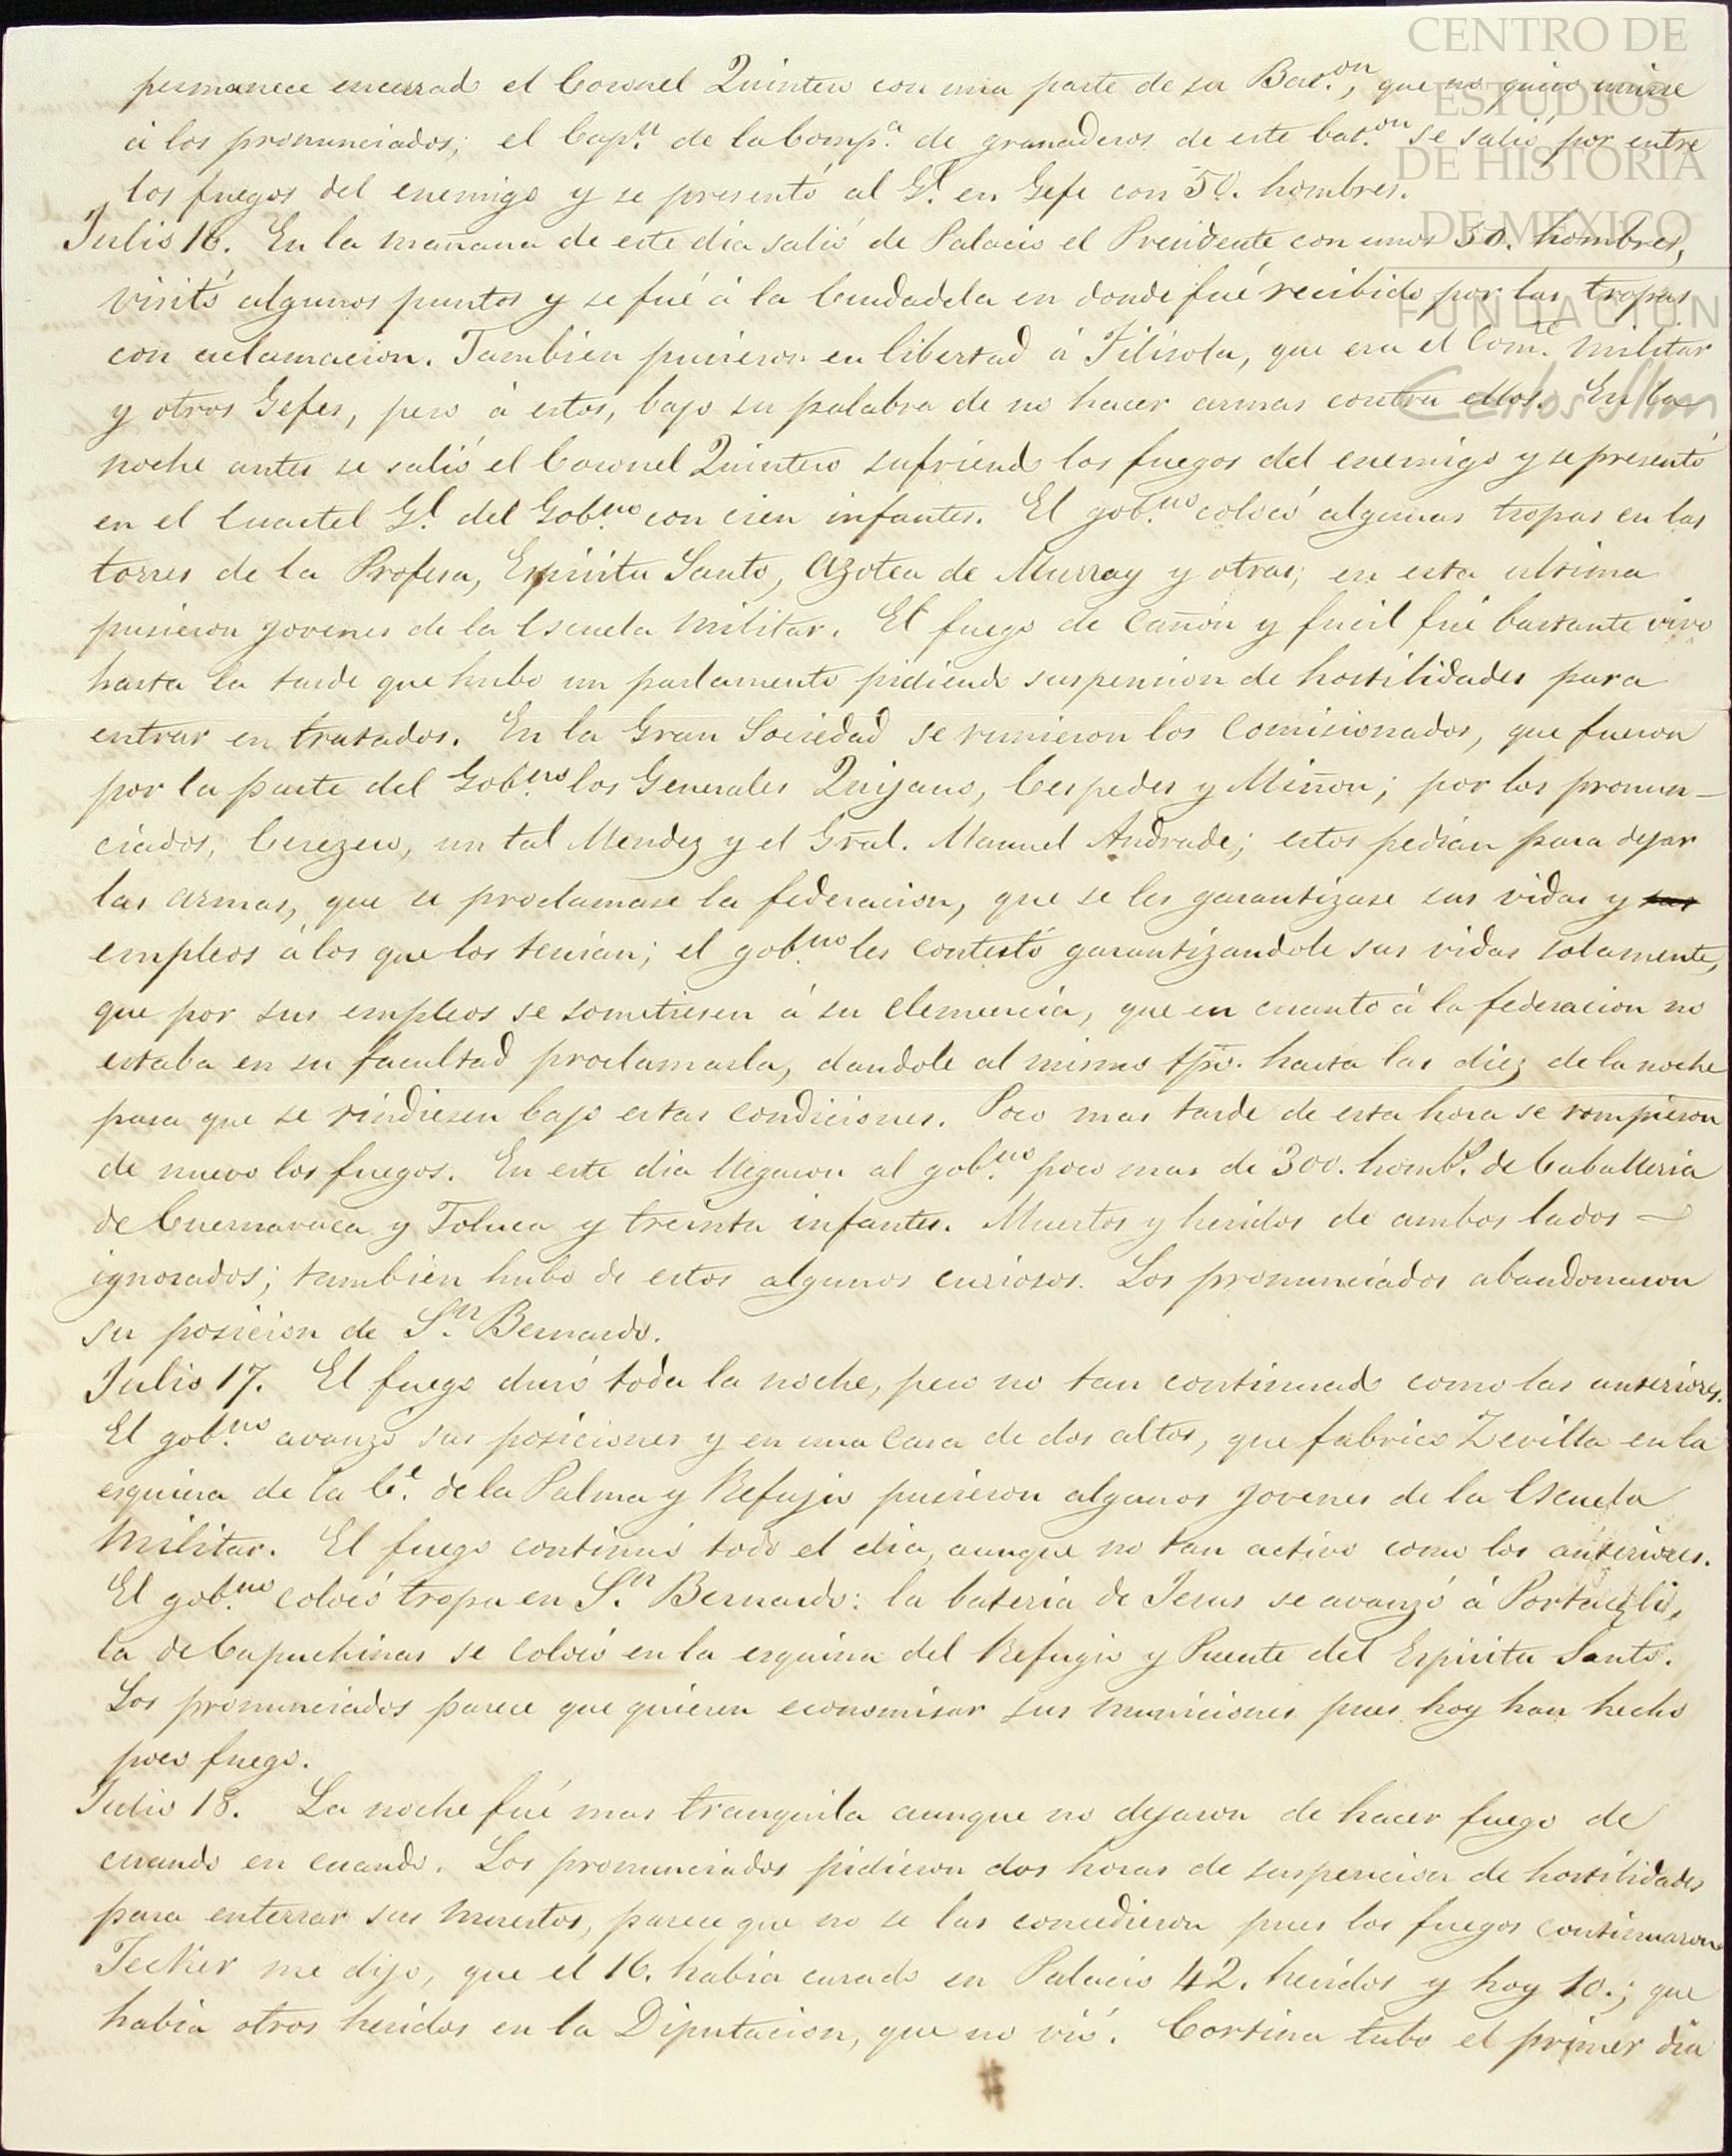 CENTRO DE
ESTUDIOS
DE HISTORIA
DE MEXICO
FUNDACION
Carlos Slim
permanece encerrado el Coronel Quintero con una parte de su Bat.on, que no quiso unirse
á los pronunciados; el Cap.n de la Comp.a de granaderos de este bat.on se salió por entre
los fuegos del enemigo y se presentó al G.l en Gefe con 50. hombres.
Julio 16. En la mañana de este dia salió de Palacio el Presidente con unos 50. hombres,
visitó algunos puntos y se fué á la Ciudadela en donde fué recibido por las tropas
con aclamacion. Tambien pusieron en libertad á Filisola, que era el Com.te Militar
y otros Gefes, pero á estos, bajo su palabra de no hacer armas contra ellos. En la
noche antes se salió el Coronel Quintero sufriendo los fuegos del enemigo y se presentó
en el Cuartel G.l del Gob.no con cien infantes. El gob.no colocó algunas tropas en las
torres de la Profesa, Espiritu Santo, Azotea de Murray y otras; en esta ultima
pusieron jovenes de la Escuela Militar. El fuego de Cañon y fusil fué bastante vivo
hasta la tarde que hubo un parlamento pidiendo suspension de hostilidades para
entrar en tratados. En la Gran Sociedad se reunieron los Comisionados, que fueron
por la parte del Gob.no los Generales Quijano, Cespedes y Miñon; por los pronun-
ciados, Cerezero, un tal Mendez y el Gral. Manuel Andrade; estos pedian para dejar
las armas, que se proclamase la federacion, que se les garantizase sus vidas y sus
empleos á los que los tenian; el gob.no les contestó garantizandole sus vidas solamente,
que por sus empleos se sometiesen á su Clemencia, que en cuanto á la federacion no
estaba en su facultad proclamarla, dandole al mismo tpo. hasta las diez de la noche
para que se rindiesen bajo estas condiciones. Poco mas tarde de esta hora se rompieron
de nuevo los fuegos. En este dia llegaron al gob.no poco mas de 300. homb.s de Caballeria
de Cuernavaca y Toluca y treinta infantes. Muertos y heridos de ambos lados —
ignorados; tambien hubo de estos algunos curiosos. Los pronunciados abandonaron
su posicion de S.n Bernardo.
Julio 17. El fuego duró toda la noche, pero no tan continuado como las anteriores.
El gob.no avanzó sus posiciones y en una Casa de dos altos, que fabrico Zevilla en la
esquina de la C.e de la Palma y Refujio pusieron algunos jovenes de la Escuela
Militar. El fuego continuó todo el dia, aunque no tan activo como los anteriores.
El gob.no colocó tropa en S.n Bernardo: la bateria de Jesus se avanzó á Portacœli,
la de Capuchinas se colocó en la esquina del Refugio y Puente del Espiritu Santo.
Los pronunciados parece que quieren economisar sus municiones pues hoy han hecho
poco fuego.
Julio 18. La noche fué mas tranquila aunque no dejaron de hacer fuego de
cuando en cuando. Los pronunciados pidieron dos horas de suspencion de hostilidades
para enterrar sus muertos, parece que no se las concedieron pues los fuegos continuaron.
Tecker me dijo, que el 16. habia curado en Palacio 42. heridos y hoy 10.; que
habia otros heridos en la Diputacion, que no vió. Cortina tubo el primer dia
#